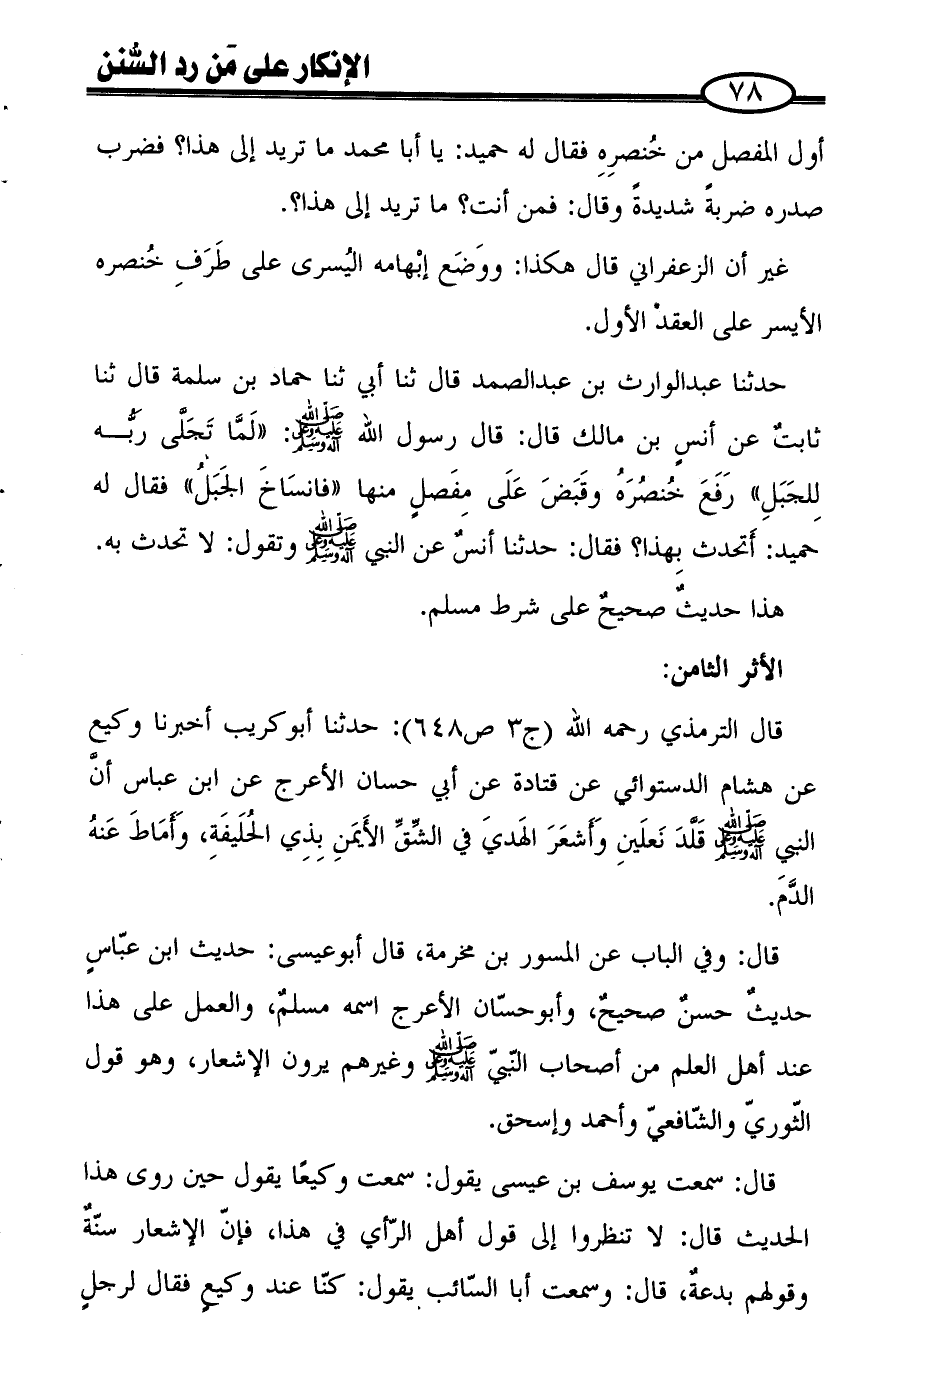 الإنكار على مَن رد السُّنن
٧٨
أول المفصل من خُنصرِهِ فقال له حميد: يا أبا محمد ما تريد إلى هذا؟ فضرب
صدره ضربةً شديدةً وقال: فمن أنت؟ ما تريد إلى هذا؟.
غير أن الزعفراني قال هكذا: ووَضَع إبْهامه اليُسرى على طَرَفِ خُنصره
الأيسر على العقدْ الأول.
حدثنا عبدالوارث بن عبدالصمد قال ثنا أبي ثنا حماد بن سلمة قال ثنا
ثابتٌ عن أنسٍ بن مالك قال: قال رسول الله ﷺ: «لَمَّا تَجَلَّى ربُّـــه
لِلجَبَلِ» رَفَعَ خُنصُرَهُ وقَبَضَ عَلَى مِفَصلٍ منها «فانسَاخَ الجَبَلُ» فقال له
حميد: أَتحدث بِهذا؟ فقال: حدثنا أنسٌ عن النبي ﷺ وتقول: لا تحدث به.
هذا حديثٌ صحيحٌ على شرط مسلم.
الأثر الثامن:
قال الترمذي رحمه الله (ج٣ ص٦٤٨): حدثنا أبوكريب أخبرنا وكيع
عن هشام الدستوائي عن قتادة عن أبي حسان الأعرج عن ابن عباس أنَّ
النبي ﷺ قَلَّدَ نَعلَينِ وأَشعَرَ الهَديَ في الشقِّ الأَيمَنِ بِذِي الحُلَيفَةِ، وأَمَاطَ عَنهُ
الدَّمَ.
قال: وفي الباب عن المسور بن مخرمة، قال أبوعيسى: حديث ابن عبّاسٍ
حديثٌ حسنٌ صحيحٌ، وأبوحسّان الأعرج اسمه مسلمٌ، والعمل على هذا
عند أهل العلم من أصحاب النّبيّ ﷺ وغيرهم يرون الإشعار، وهو قول
الثّوريّ والشّافعيّ وأحمد وإسحق.
قال: سمعت يوسف بن عيسى يقول: سمعت وكيعًا يقول حين روى هذا
الحديث قال: لا تنظروا إلى قول أهل الرّأي في هذا، فإنّ الإشعار سنّةٌ
وقولهم بدعةٌ، قال: وسمعت أبا السّائب يقول: كنّا عند وكيعٍ فقال لرجلٍ